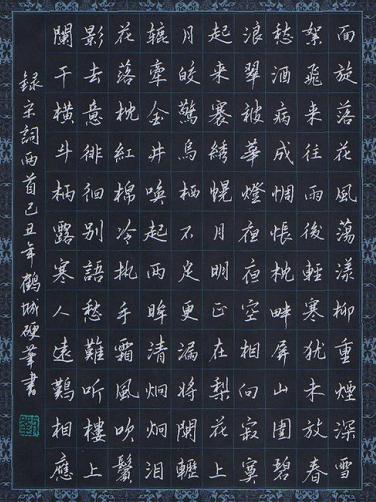 面旋落花風蕩漾柳重煙深雪
絮飛來往雨後輕寒猶未放春
愁酒病成惆悵枕畔屏山圍碧
浪翠被華燈夜夜空相向寂寞
起來褰繡幌月明正在梨花上
月皎驚烏栖不定更漏將闌轣
轆牽金井喚起兩眸清炯炯泪
花落枕紅棉冷執手霜風吹鬢
影去意徘徊別語愁難听樓上
闌干橫斗柄露寒人遠鷄相應
録宋詞兩首己丑年鶴城硬筆書